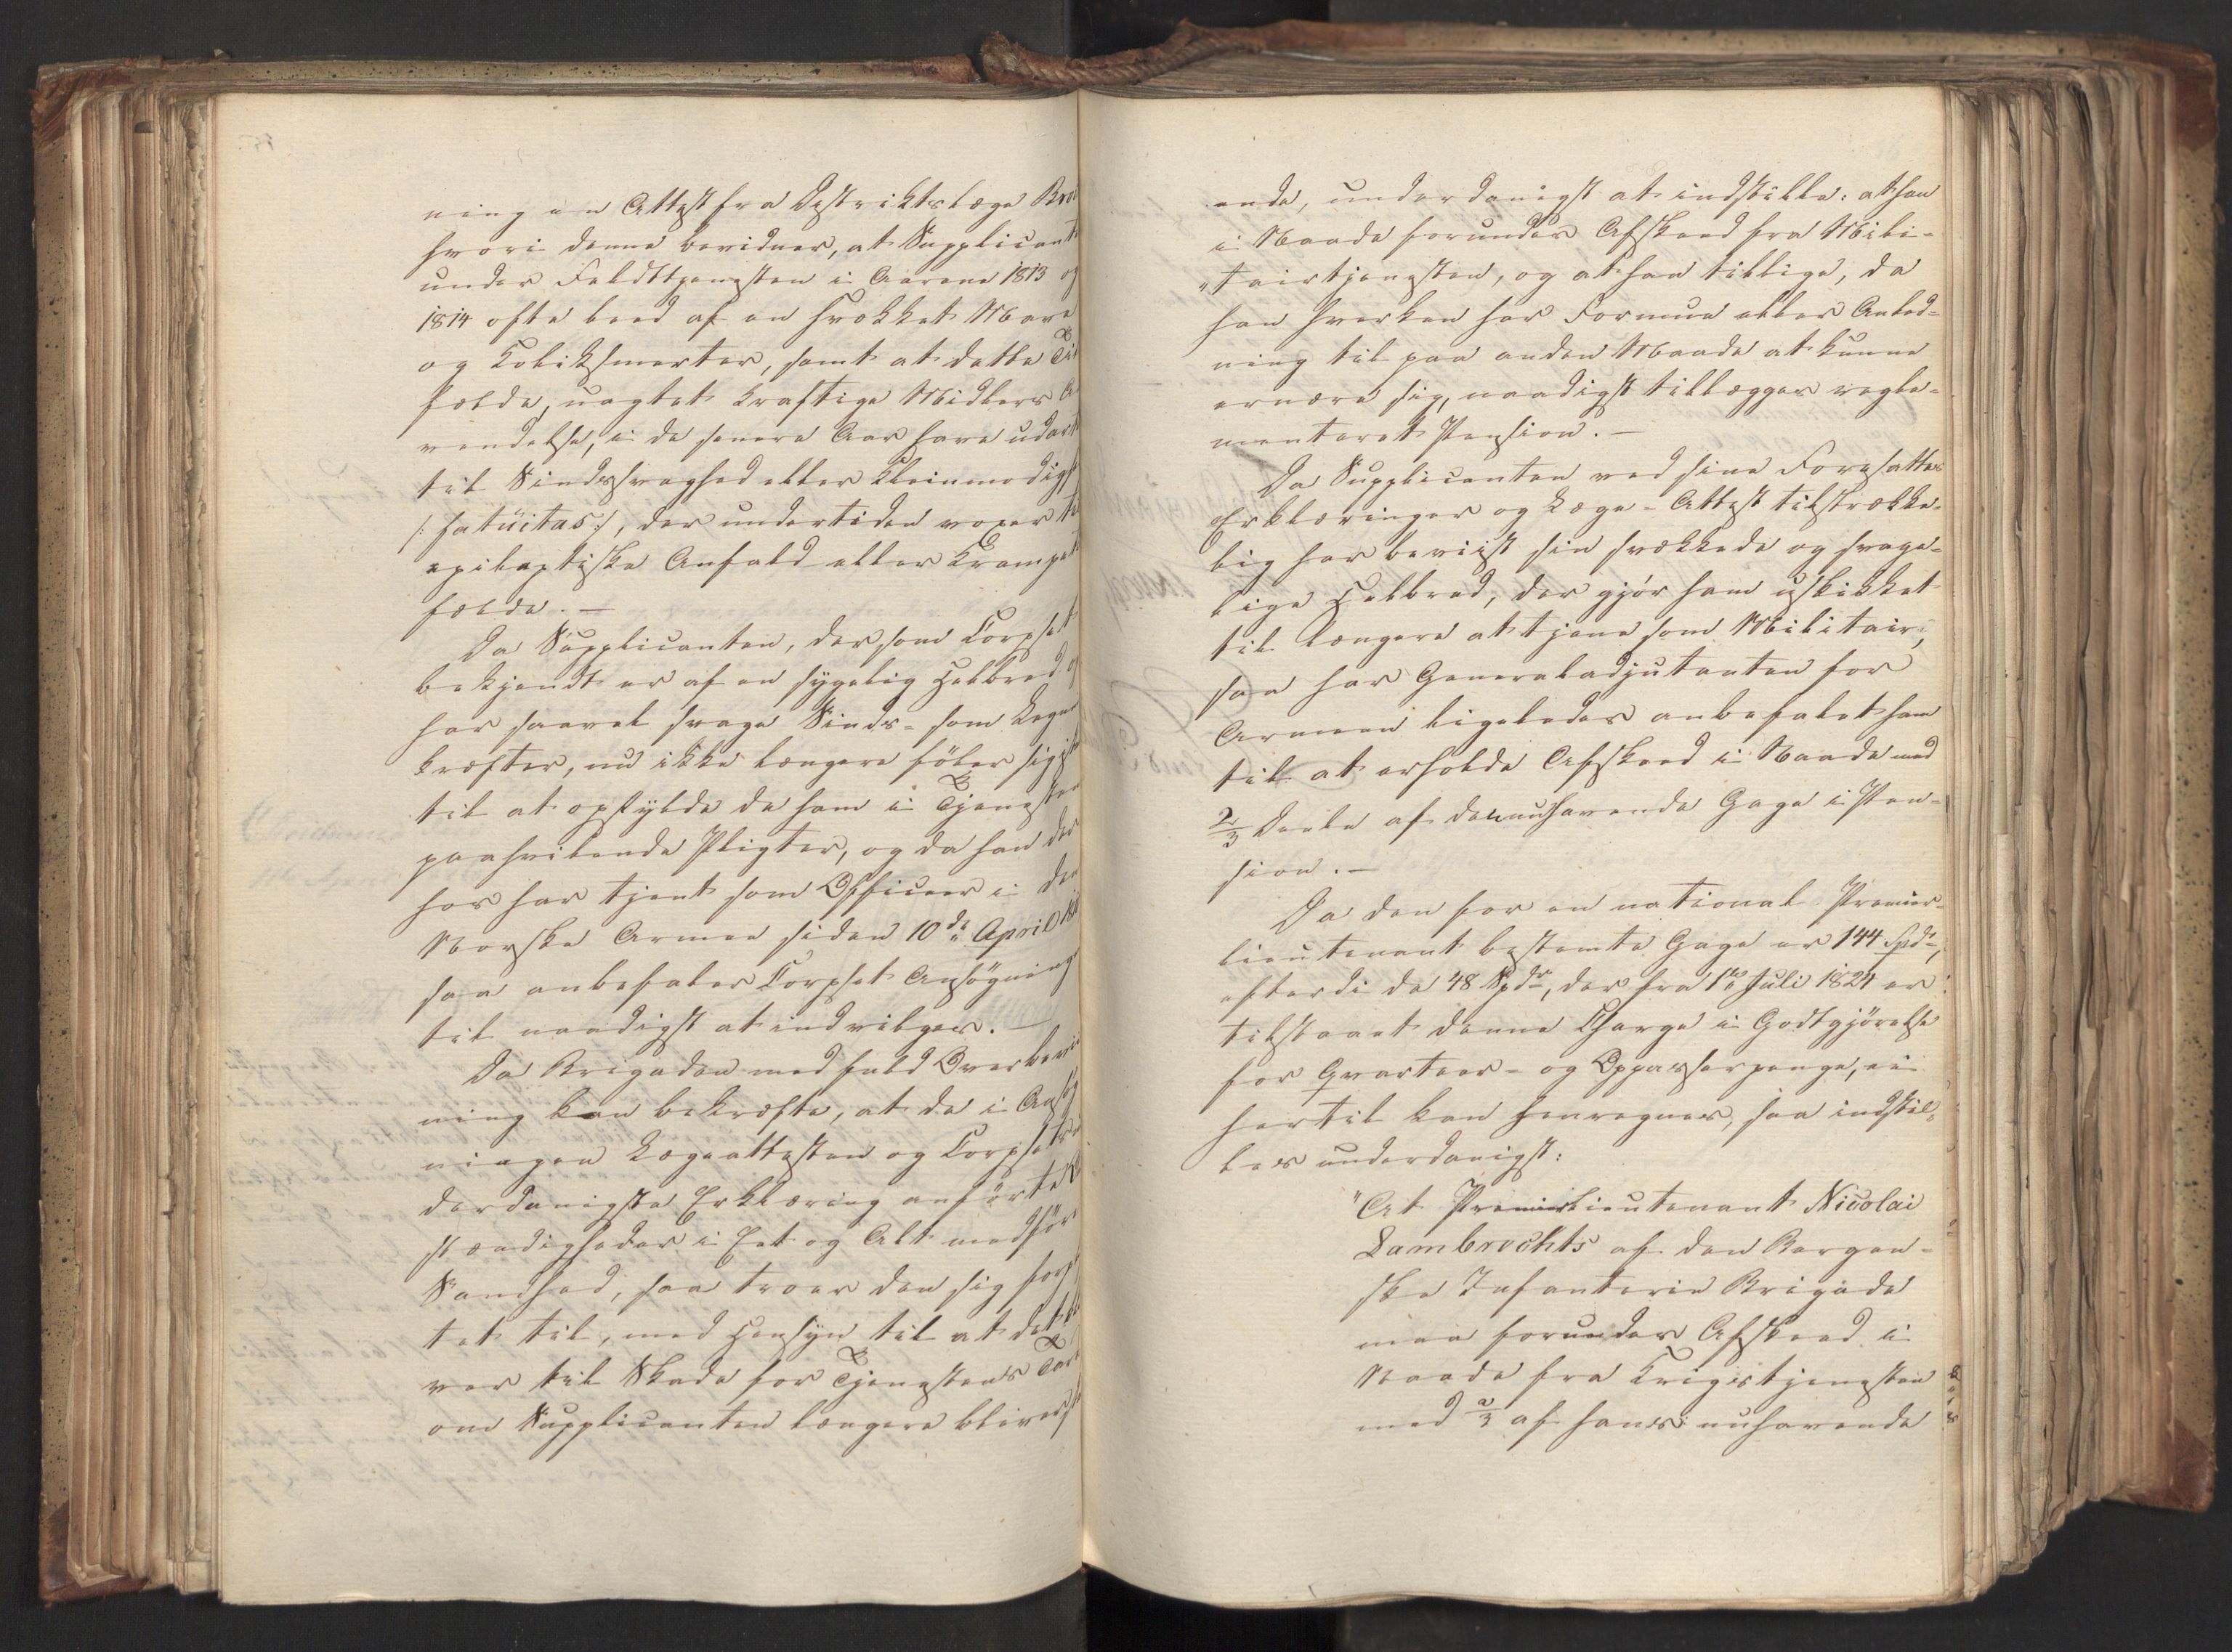 ning en Attest fra Distriktslæge
hvori denne bevidner, at Supplicant
under Feldttjenesten i Aarene 1813 og
1814 ofte leed af en svækket Mave
og Koliksmerter, samt at dette Til
fælde, uagtet kraftige Midlers A
vendelse, i de senere Aar have udart
til Sindssvaghed eller Kleinmodigh
/: fatuitas :/, der undertiden voxer til
epileptiske Anfald eller Krampet
fælde. —
Da Supplicanten, der, som Corpset
bekjendt er af en sygelig Helbred og
har saavel svage Sinds- som Legems
kræfter, nu ikke længere föler sig i
til at opfylde de ham i Tjenesten
paahvilende Pligter, og da han der
hos har tjent som Officeer i den
Norske Armee siden 10de April
saa anbefaler Corpset Ansögning
til naadigst at indvilges. —
Da Brigaden med fuld Overbevi
ning kan bekræfte, at de i Ansög
ningen Lægeattesten og Corpsets
derdanigste Erklæring anförte
stændigheder i Eet og Alt medföre
Sandhed, saa troer den sig forpl
tet til, med Hensyn til at det
ver til Skade for Tjenestens Tarv
om Supplicanten længere bliver
ende, underdanigst at indstille: at han
i Naade forundes Afskeed fra Mili-
"tairtjenesten, og at han tillige, da
han hverken har Formue eller Anled-
ning til paa anden Maade at kunne
ernære sig, naadigst tillægges regle-
menteret Pension. —
Da Supplicanten ved sine Foresattes
Erklæringer og Læge-Attest tilstrække-
lig har beviist sin svækkede og svage-
lige Helbred, der gjör ham uskikket
til længere at tjene som Militair,
saa har Generaladjutanten for
Armeen ligeledes anbefalet ham
til at erholde Afskeed i Naade med
2/3 Deele af den nuhavende Gage i Pen-
sion. —
Da den for en national Premier-
lieutenant bestemte Gage er 144 Spdr,
efterdi de 48 Spdr, der fra 1te Juli 1824 er
tilstaaet denne Charge i Godtgjörelse
for Qvarteer- og Oppasserpenge, ei
hertil kan henregnes, saa indstil-
les underdanigst:
"At Premierlieutenant Nicolai
Lambrechts af den Bergen-
ske Infanterie Brigade
maa forundes Afskeed i
Naade fra Krigstjenesten
med 2/3 af hans nuhavende